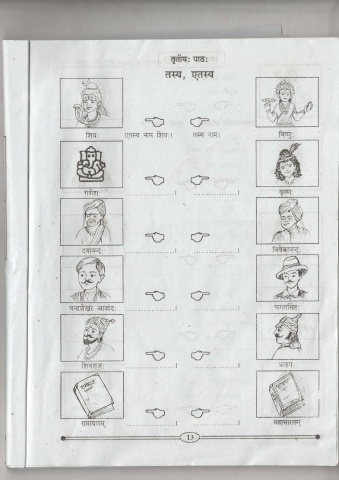 तृतीयः पाठः
तस्य, एतस्य
शिवः एतस्य नाम शिवः। तस्य नाम। विष्णुः
गणेशः ....................। ....................। कृष्णः
दयानन्दः ....................। ....................। विवेकानन्दः
चन्द्रशेखर आजादः ....................। ....................। भगतसिंहः
शिवराजः ....................। ....................। प्रतापः
रामायणम् ....................। ....................। महाभारतम्
13